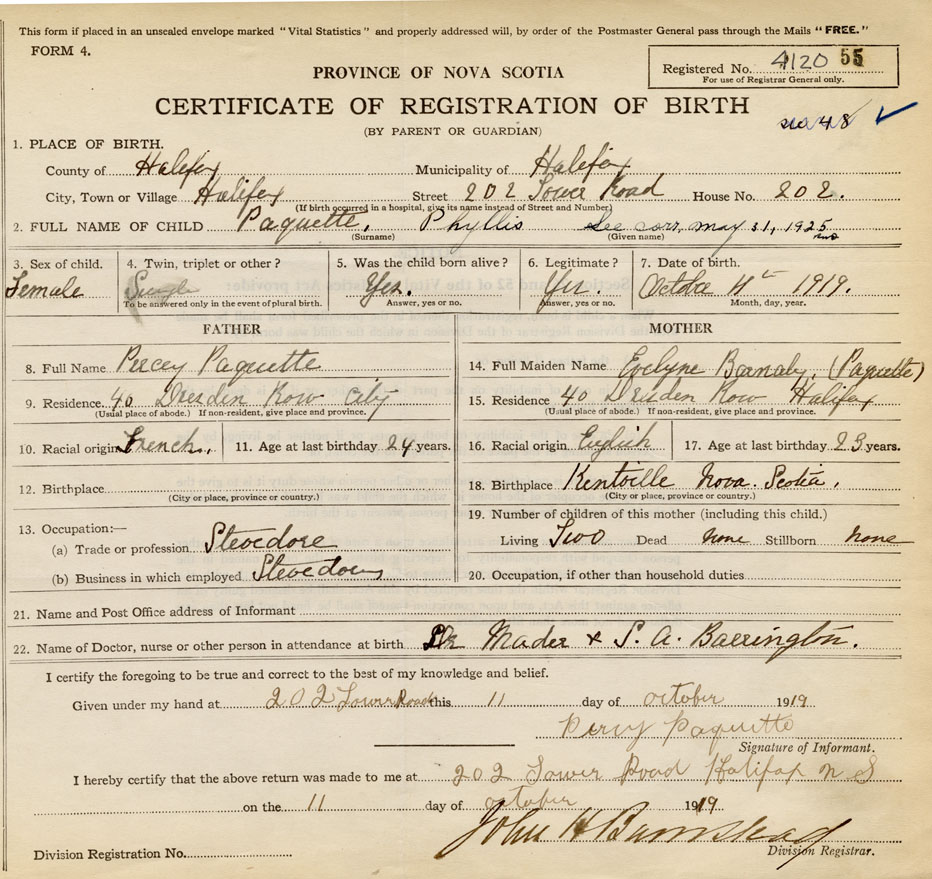 This form if placed in an unsealed envelope marked "Vital Statistics" and properly addressed will, by order of the Postmaster General pass through the Mails "FREE."
FORM 4.
Registered No. 4120 55
For use of Registrar General only.
PROVINCE OF NOVA SCOTIA
CERTIFICATE OF REGISTRATION OF BIRTH
(BY PARENT OR GUARDIAN)
48
1. PLACE OF BIRTH.
County of Halifax Municipality of Halifax
City, Town or Village Halifax Street 202 Tower Road House No. 202.
(If birth occurred in a hospital, give its name instead of Street and Number)
2. FULL NAME OF CHILD Paquette, Phyllis See corr. May 31, 1925
(Surname) (Given name)
3. Sex of child. 4. Twin, triplet or other? 5. Was the child born alive? 6. Legitimate? 7. Date of birth.
Female Single Yes. Yes. October 4th 1919.
To be answered only in the event of plural birth. Answer, yes or no. Answer, yes or no. Month, day, year.
FATHER MOTHER
8. Full Name Percy Paquette 14. Full Maiden Name Evelyne Barnaby. (Paquette)
9. Residence 40 Dresden Row City 15. Residence 40 Dresden Row Halifax
(Usual place of abode.) If non-resident, give place and province. (Usual place of abode.) If non-resident, give place and province.
10. Racial origin French. 11. Age at last birthday 24 years. 16. Racial origin English 17. Age at last birthday 23 years.
12. Birthplace 18. Birthplace Kentville Nova Scotia.
(City or place, province or country.) (City or place, province or country.)
13. Occupation:— 19. Number of children of this mother (including this child.)
(a) Trade or profession Stevedore Living Two Dead none Stillborn none
(b) Business in which employed Stevedore 20. Occupation, if other than household duties
21. Name and Post Office address of Informant
22. Name of Doctor, nurse or other person in attendance at birth Dr Mader & S. A. Barrington.
I certify the foregoing to be true and correct to the best of my knowledge and belief.
Given under my hand at 202 Tower Road this 11 day of october 1919
Percy Paquette
Signature of Informant.
I hereby certify that the above return was made to me at 202 Tower Road Halifax N S
on the 11 day of october 1919
John H Barnstead
Division Registration No. Division Registrar.